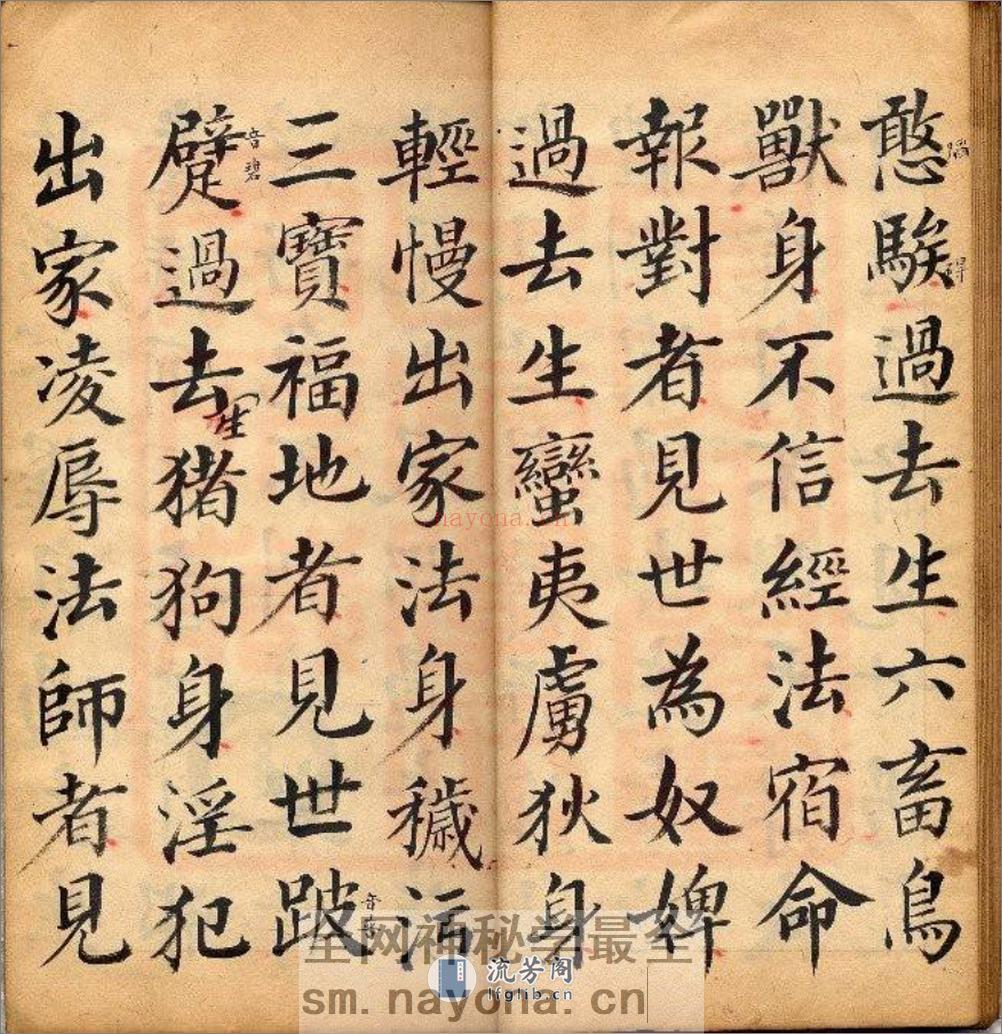 憨騃過去生六畜鳥
獸身不信經法宿命
報對者見世為奴婢
過去生蠻夷虜狄身
輕慢出家法身穢污
三寶福地者見世跛
音
躄過去生猪狗身淫犯
音碧
出家凌辱法師者見
nayona.cn
全网神秘学最全
sm.nayona.cn
流芳阁
lfglib.cn